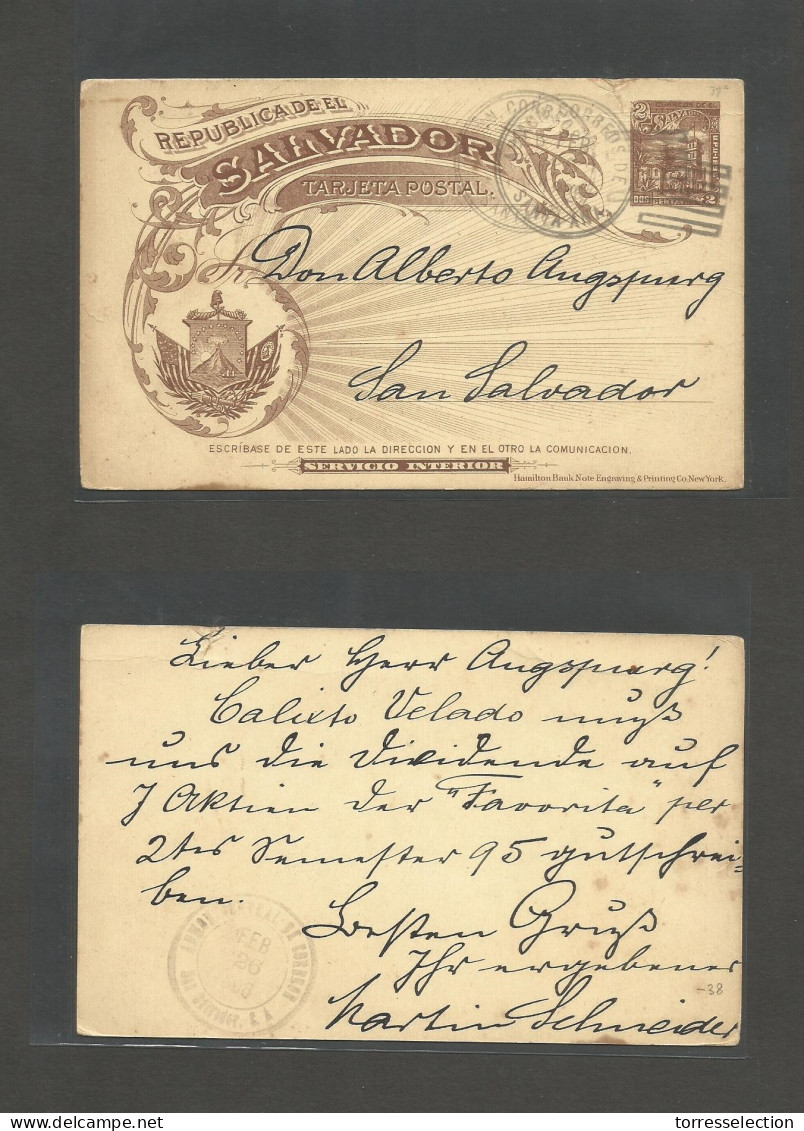 REPUBLICA DE EL
SALVADOR
TARJETA POSTAL.
2 2
DOS
SANTA ANA
Don Alberto Angspurg
San Salvador
ESCRÍBASE DE ESTE LADO LA DIRECCION Y EN EL OTRO LA COMUNICACION.
SERVICIO INTERIOR
Hamilton Bank Note Engraving & Printing Co. New York.
Lieber Herr Angspurg!
Calixto Velado muß
uns die Dividende auf
7 Aktien der "Favorita" per
2tes Semester 95 gutschrei=
ben.
Besten Gruß
Ihr ergebener
Martin Schneider
-38
GENERAL DE CORREOS
FEB
26
San Salvador, C. A
torresselection